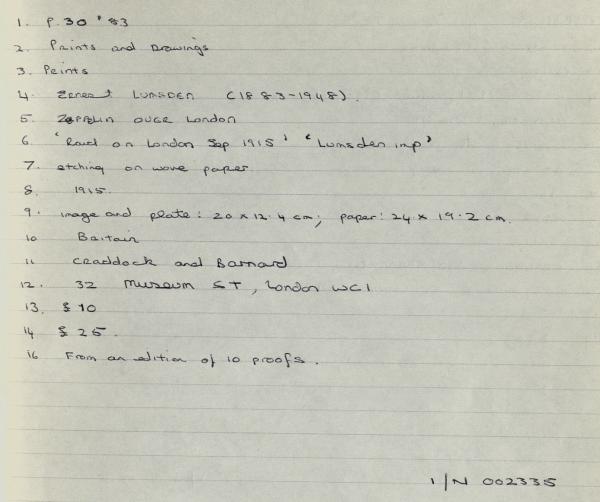 1. P.30 '83
2. Prints and Drawings
3. Prints
4. Ernest LUMSDEN (1883-1948).
5. Zeppelin over London
6. 'Raid on London Sep 1915' 'Lumsden imp'
7. etching on wove paper
8. 1915.
9. image and plate: 20 x 12.4 cm; paper: 24 x 19.2 cm.
10 Britain
11 Craddock and Barnard
12. 32 Museum ST, London WC1
13. $ 70
14 $ 25.
16 From an edition of 10 proofs.
1/N 002335